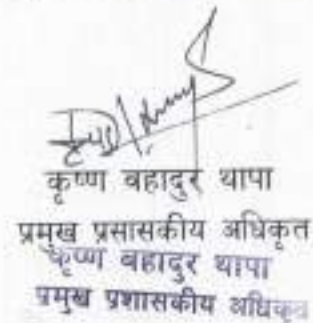 कृष्ण बहादुर थापा
प्रमुख प्रसासकीय अधिकृत
कृष्ण बहादुर थापा
प्रमुख प्रशासकीय अधिकृत